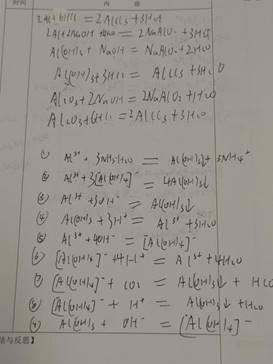 时间
内 容
2Al+6HCl=2AlCl3+3H2↑
2Al+2NaOH+2H2O=2NaAlO2+3H2↑
Al(OH)3+NaOH=NaAlO2+2H2O
Al(OH)3+3HCl=AlCl3+3H2O
Al2O3+2NaOH=2NaAlO2+H2O
Al2O3+6HCl=2AlCl3+3H2O
① Al³⁺+3NH3·H2O=Al(OH)3↓+3NH4⁺
② Al³⁺+3[Al(OH)4]⁻=4Al(OH)3↓
③ Al³⁺+3OH⁻=Al(OH)3↓
④ Al(OH)3+3H⁺=Al³⁺+3H2O
⑤ Al³⁺+4OH⁻=[Al(OH)4]⁻
⑥ [Al(OH)4]⁻+4H⁺=Al³⁺+4H2O
⑦ [Al(OH)4]⁻+CO2=Al(OH)3↓+HCO
⑧ [Al(OH)4]⁻+H⁺=Al(OH)3↓+H2O
⑨ Al(OH)3+OH⁻=[Al(OH)4]⁻
结与反思】